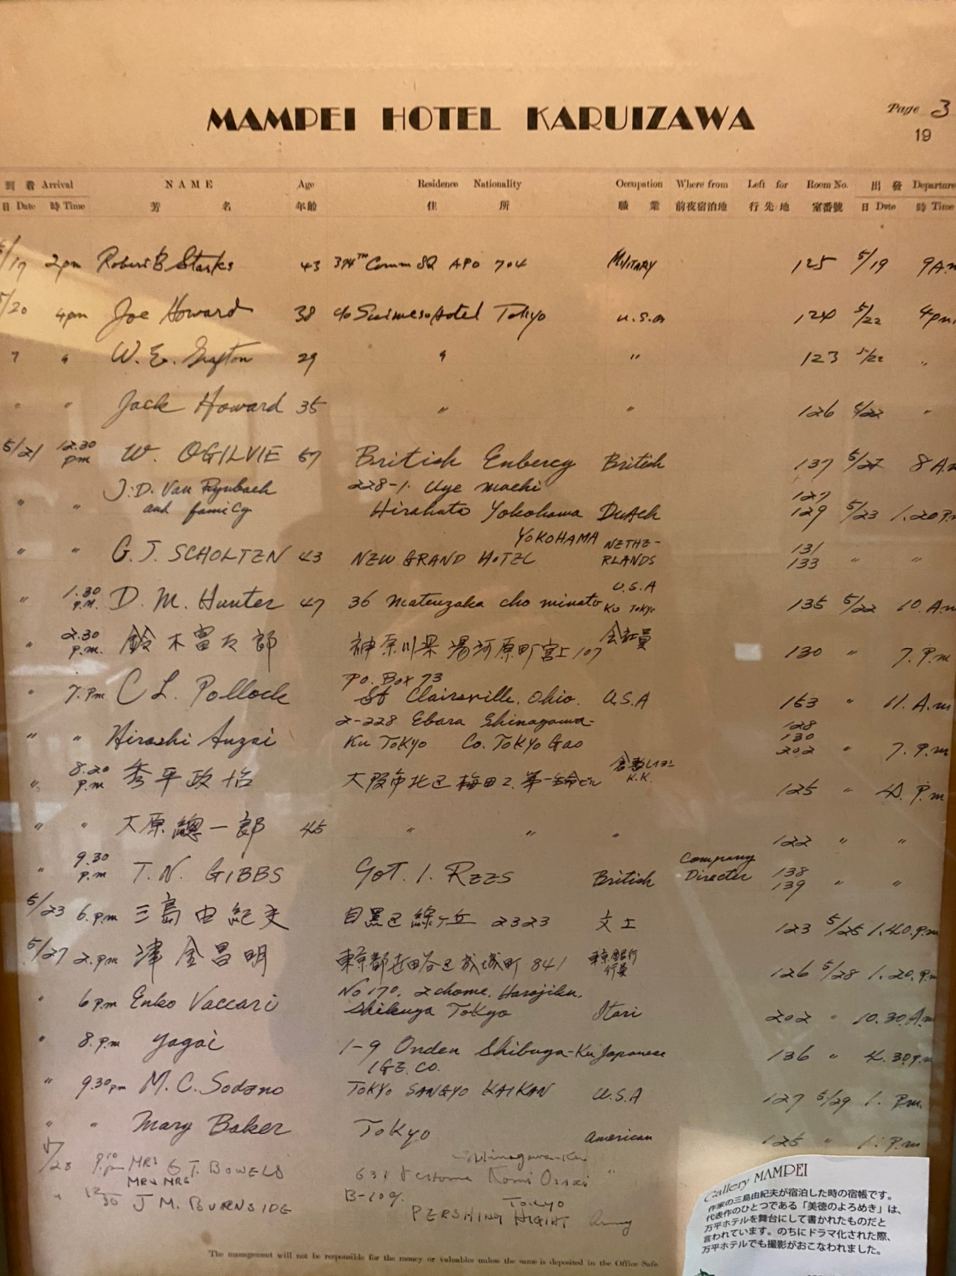 MAMPEI HOTEL KARUIZAWA
Page 3
19
到着 Arrival NAME Age Residence Nationality Occupation Where from Left for Room No. 出發 Departure
日 Date 時 Time 芳名 年齢 住所 職業 前夜宿泊地 行先地 室番號 日 Dvte 時 Time
5/19 2pm Robert B Starks 43 374TH Comm SQ APO 704 Military 125 5/19 9AM
5/20 4pm Joe Howard 38 c/o Hotel Tokyo U.S.A 124 5/22 4pm
〃 〃 W. E. 29 〃 〃 123 5/22 〃
〃 〃 Jack Howard 35 〃 〃 126 5/22 〃
5/21 12.30 pm W. OGILVIE 67 British Embercy British 137 5/27 8 AM
J.D. Van and family 228-1. Uye machi
〃 〃 Hirahato Yokohama Dutch 127 129 5/23 1.20 P.M
〃 〃 G.J. SCHOLTEN 43 NEW GRAND HOTEL YOKOHAMA NETHE-RLANDS 131 133 〃 〃
〃 1.30 P.M. D. M. Hunter 47 36 Matsuzaka cho minato Ku Tokyo U.S.A 135 5/22 10. A.m
〃 2.30 P.M. 鈴木富太郎 神奈川県湯河原町宮上107 会社員 130 〃 7. P.m
〃 7. Pm C L. Pollock P.O. Box 73
St Clairsville, Ohio. U.S.A 163 〃 11. A.m
〃 〃 Hiroshi Anzai 2-228 Ebara Shinagawa-
Ku ToKyo Co. ToKyo Gas 128 130 202 〃 7. P.m
〃 8.20 P.M 秀平政怡 大阪市北区梅田2. 第一生命ビル K.K. 125 〃 4. P.m
〃 〃 大原總一郎 45 〃 〃 〃 122 〃 〃
〃 9.30 P.M T.N. GIBBS British Company Director 138 139 〃 〃
5/23 6.pm 三島由紀夫 目黒区緑ヶ丘 2323 文工 123 5/25 1.40.P.m
5/27 2.pm 津金昌明 東京都世田谷区成城町 841 東京銀行 行員 126 5/28 1.20. P.m
〃 6pm Enko Vaccari No 170. 2 chome. Harajiku.
Shibuya ToKyo Itari 202 〃 10.30 A.m
〃 8. P.m Yagai 1-9 Onden Shibuya-Ku Japanese 136 〃 4.30 P.m
〃 9.30pm M.C. Sodano IGE. CO.
TOKYO SANGYO KAIKAN U.S.A 127 5/29 1. P.m.
〃 〃 Mary Baker Tokyo American 125 〃 1. P.m
5/28 MRS G T. BOWELS Shinagawa-Ku
Kami Osaki 〃
〃 MR & MRS J M. BURNSIDE B-109. Tokyo
PERSHING HIGHT Army
The management will not be responsible for the money or valuables unless the same is deposited in the Office Safe
Gallery MAMPEI
作家の三島由紀夫が宿泊した時の宿帳です。
代表作のひとつである「美徳のよろめき」は、
万平ホテルを舞台にして書かれたものだと
言われています。のちにドラマ化された際、
万平ホテルでも撮影がおこなわれました。